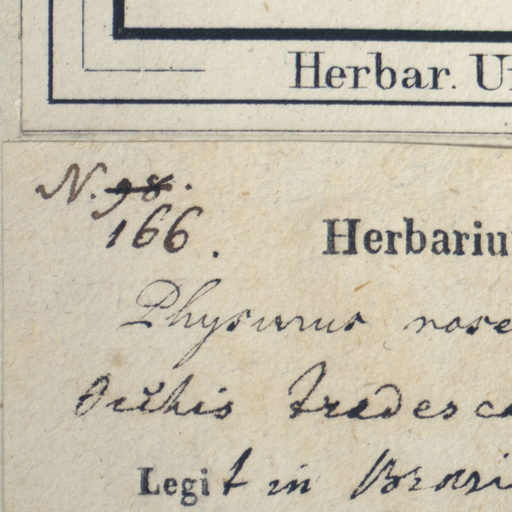 Herbar. U
N. 98.
166.
Herbariu
Physurus rose
Orchis tradesca
Legit in Brasi